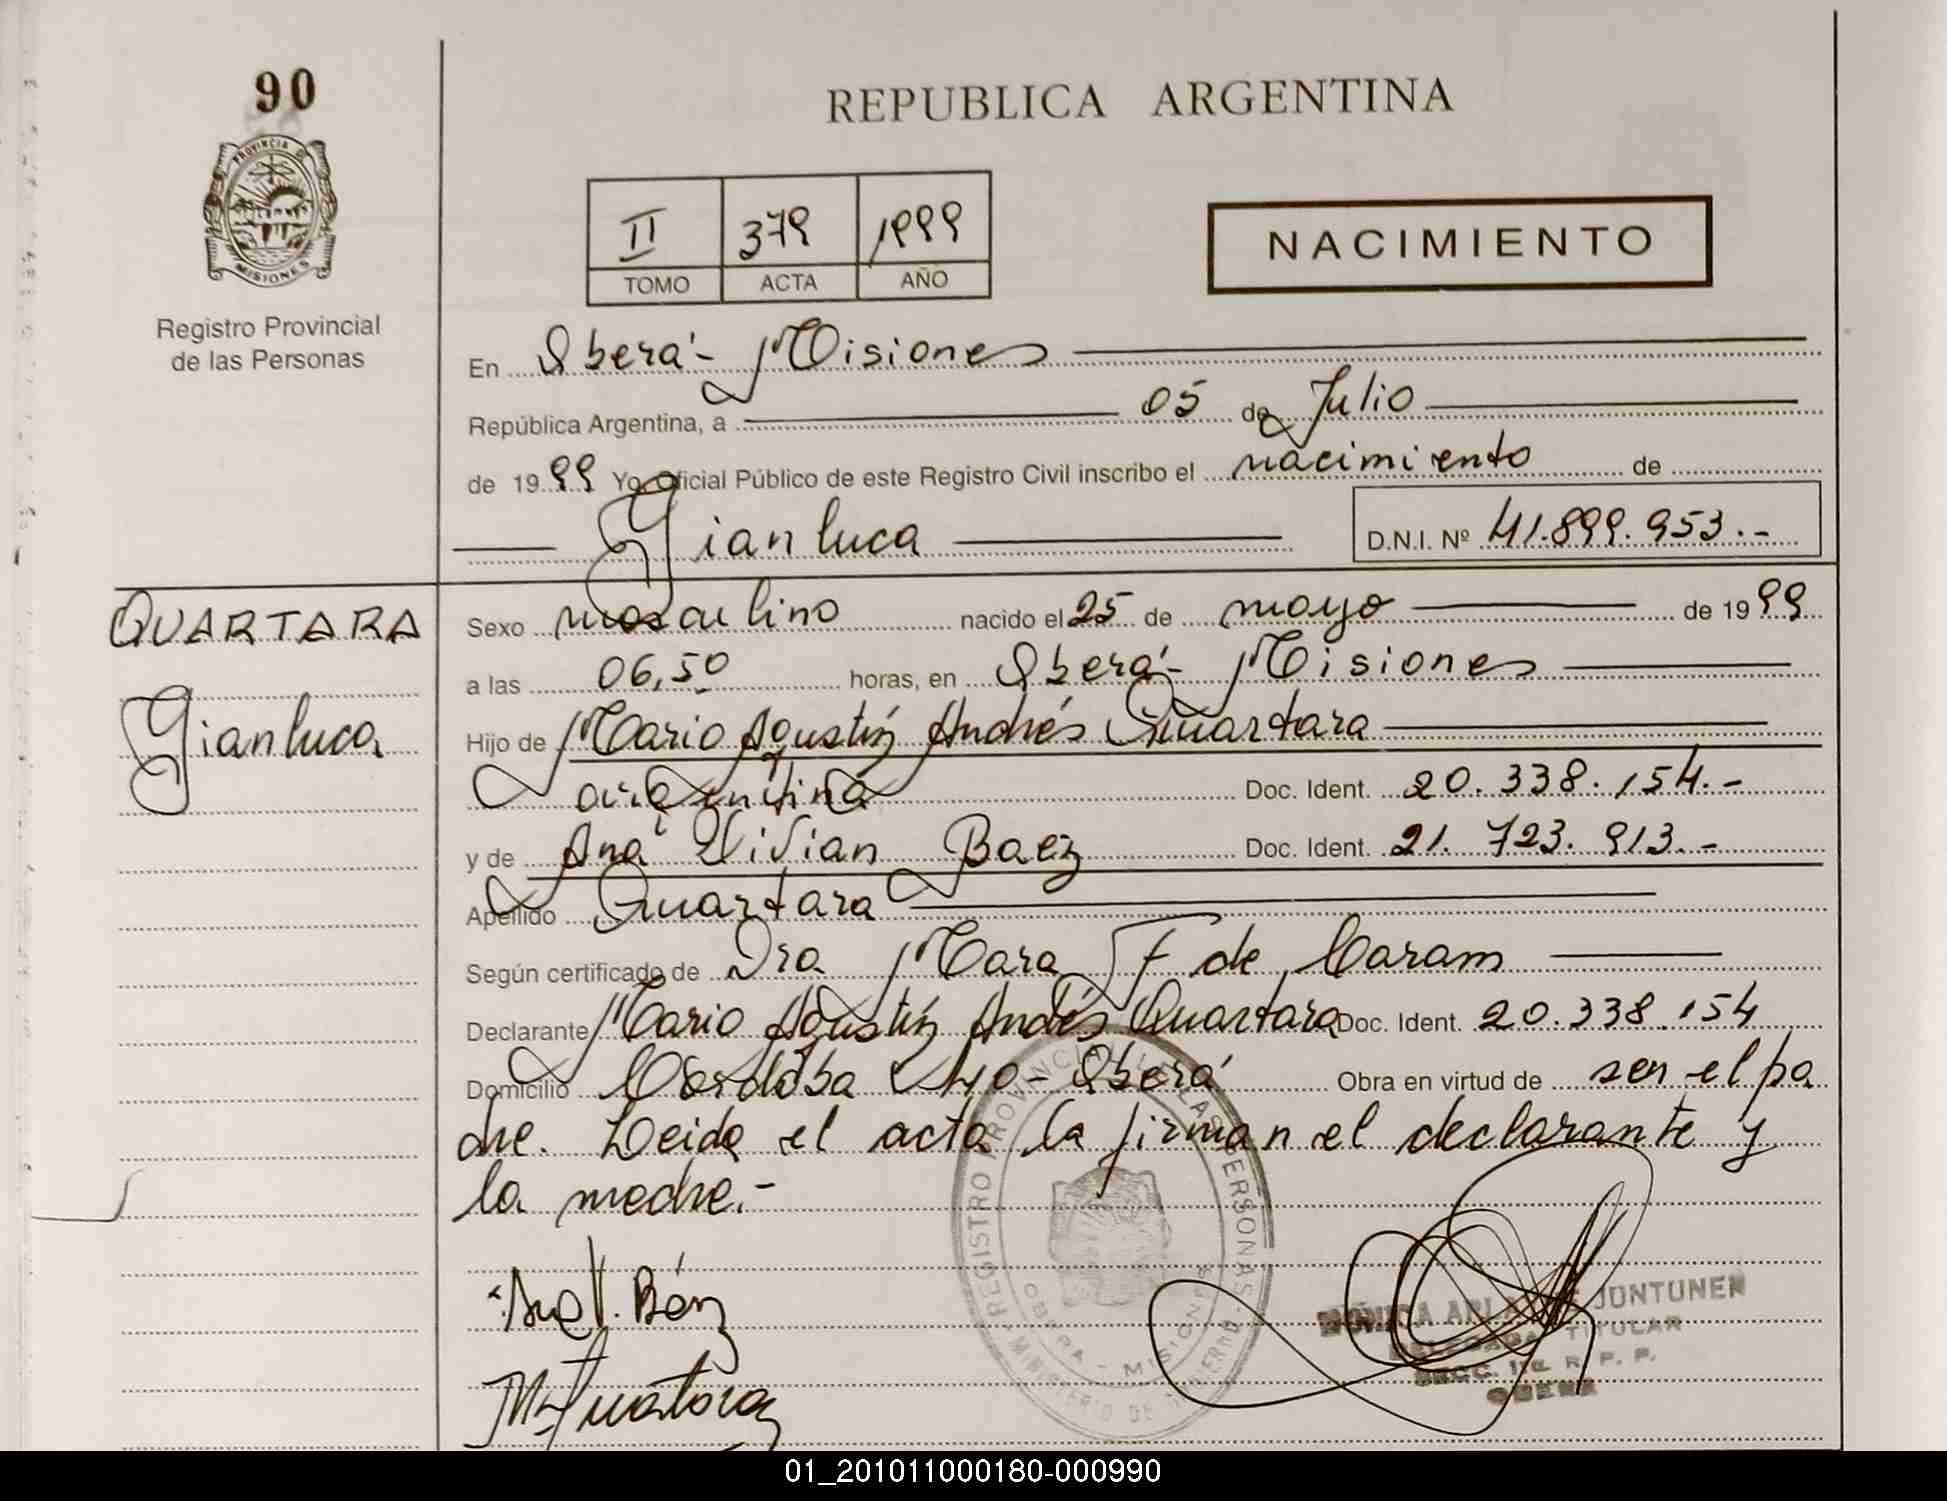 90
PROVINCIA DE
MISIONES
Registro Provincial
de las Personas
REPUBLICA ARGENTINA
II 379 1999
TOMO ACTA AÑO
NACIMIENTO
En Oberá - Misiones
República Argentina, a 05 de Julio
de 1999 Yo Oficial Público de este Registro Civil inscribo el nacimiento de
Gianluca D.N.I. Nº 41.899.953.-
QUARTARA
Gianluca
Sexo masculino nacido el 25 de mayo de 1999
a las 06,50 horas, en Oberá - Misiones
Hijo de Mario Agustín Andrés Quartara
argentina Doc. Ident. 20.338.154.-
y de Ana Vivian Baez Doc. Ident. 21.723.913.-
Apellido Quartara
Según certificado de Dra Mara F de Caram
Declarante Mario Agustín Andrés Quartara Doc. Ident. 20.338.154
Domicilio Córdoba - Oberá Obra en virtud de ser el pa
dre. Leida el acta la firman el declarante y
la madre.-
REGISTRO PROVINCIAL DE LAS PERSONAS
OBERA - MISIONES
MINISTERIO DE GOBIERNO
Ana V. Báez
M Quartara
MONICA JUNTUNEN
DELEGADA TITULAR
SECC. 1ra. R. P. P.
OBERA
01_201011000180-000990